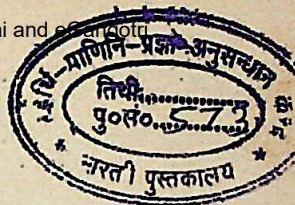 ai and eGangotri
पाणिनि-प्रज्ञा-अनुसन्धान
तिथि..................
पु०सं०...573......
भारती पुस्तकालय